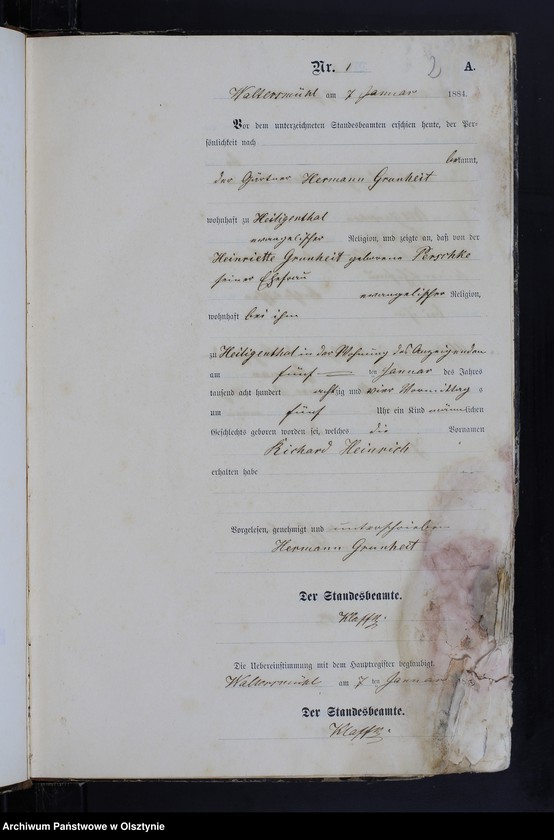 Nr. 1
2
A.
Waltersmühl am 7 Januar 1884
Vor dem unterzeichneten Standesbeamten erschien heute, der Per=
sönlichkeit nach
bekannt,
der Gärtner Hermann Grunheit
wohnhaft zu Heiligenthal
evangelischer Religion, und zeigte an, daß von der
Heinriette Grunheit geborene Perschke
seiner Ehefrau
evangelischer Religion,
wohnhaft bei ihm
zu Heiligenthal in der Wohnung des Anzeigenden
am fünf ten Januar des Jahres
tausend acht hundert achtzig und vier Vormittag s
um fünf Uhr ein Kind männlichen
Geschlechts geboren worden sei, welches die Vornamen
Richard Heinrich
erhalten habe
Vorgelesen, genehmigt und unterschrieben
Hermann Grunheit
Der Standesbeamte.
Die Uebereinstimmung mit dem Hauptregister beglaubigt.
Waltersmühl am 7 ten Januar
Der Standesbeamte.
Archiwum Państwowe w Olsztynie